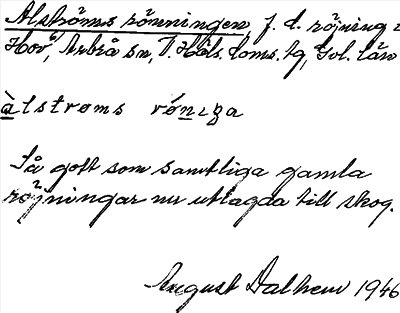 Alströms rönningen, f. d. röjning i
Hov, Arbrå sn, V. Häls. doms. tg, Gvl. län
àlstrøms rǿnıga
Så gott som samtliga gamla
röjningar nu utlagda till skog.
August Dalhem 1946